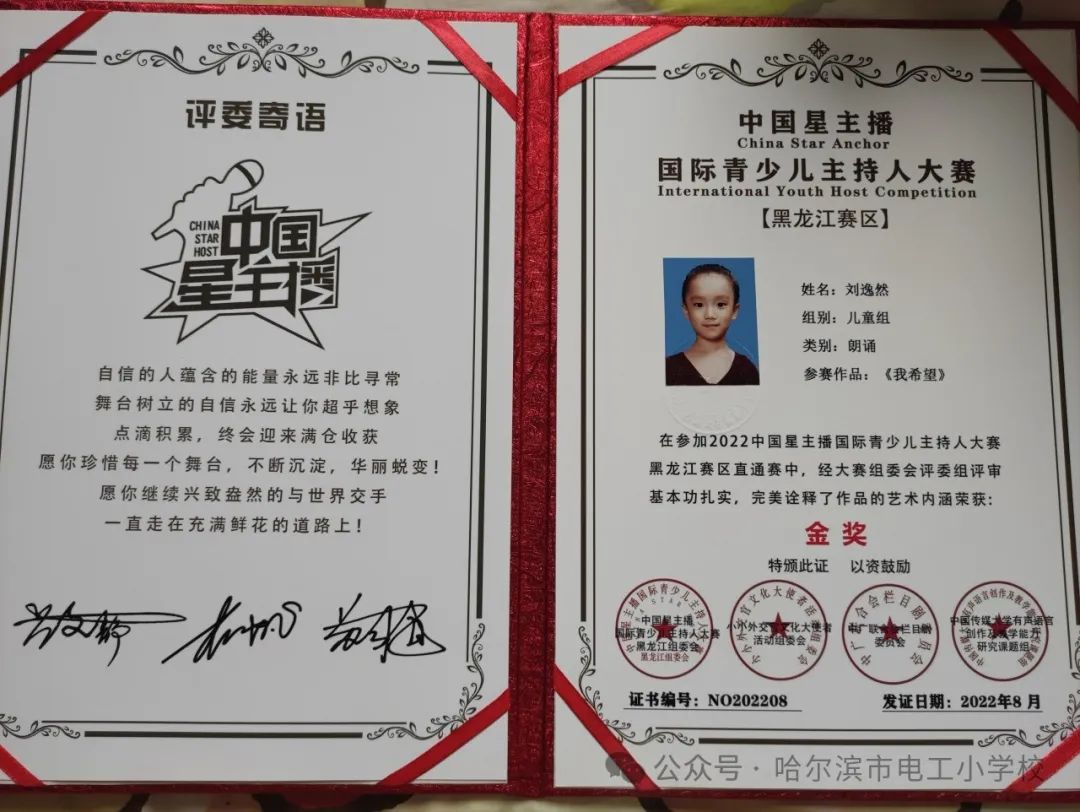 评委寄语
CHINA
STAR
HOST
中国
星主播
自信的人蕴含的能量永远非比寻常
舞台树立的自信永远让你超乎想象
点滴积累，终会迎来满仓收获
愿你珍惜每一个舞台，不断沉淀，华丽蜕变！
愿你继续兴致盎然的与世界交手
一直走在充满鲜花的道路上！
中国星主播
China Star Anchor
国际青少儿主持人大赛
International Youth Host Competition
【黑龙江赛区】
姓名：刘逸然
组别：儿童组
类别：朗诵
参赛作品：《我希望》
在参加2022中国星主播国际青少儿主持人大赛
黑龙江赛区直通赛中，经大赛组委会评委组评审
基本功扎实，完美诠释了作品的艺术内涵荣获：
金奖
特颁此证 以资鼓励
中国星主播
国际青少儿主持人大赛
黑龙江组委会
黑龙江组委会
小小外交官文化大使者
活动组委会
中广联合会栏目剧
委员会
中国传媒大学有声语言
创作及教学能力
研究课题组
证书编号：NO202208
发证日期：2022年8月
公众号·哈尔滨市电工小学校